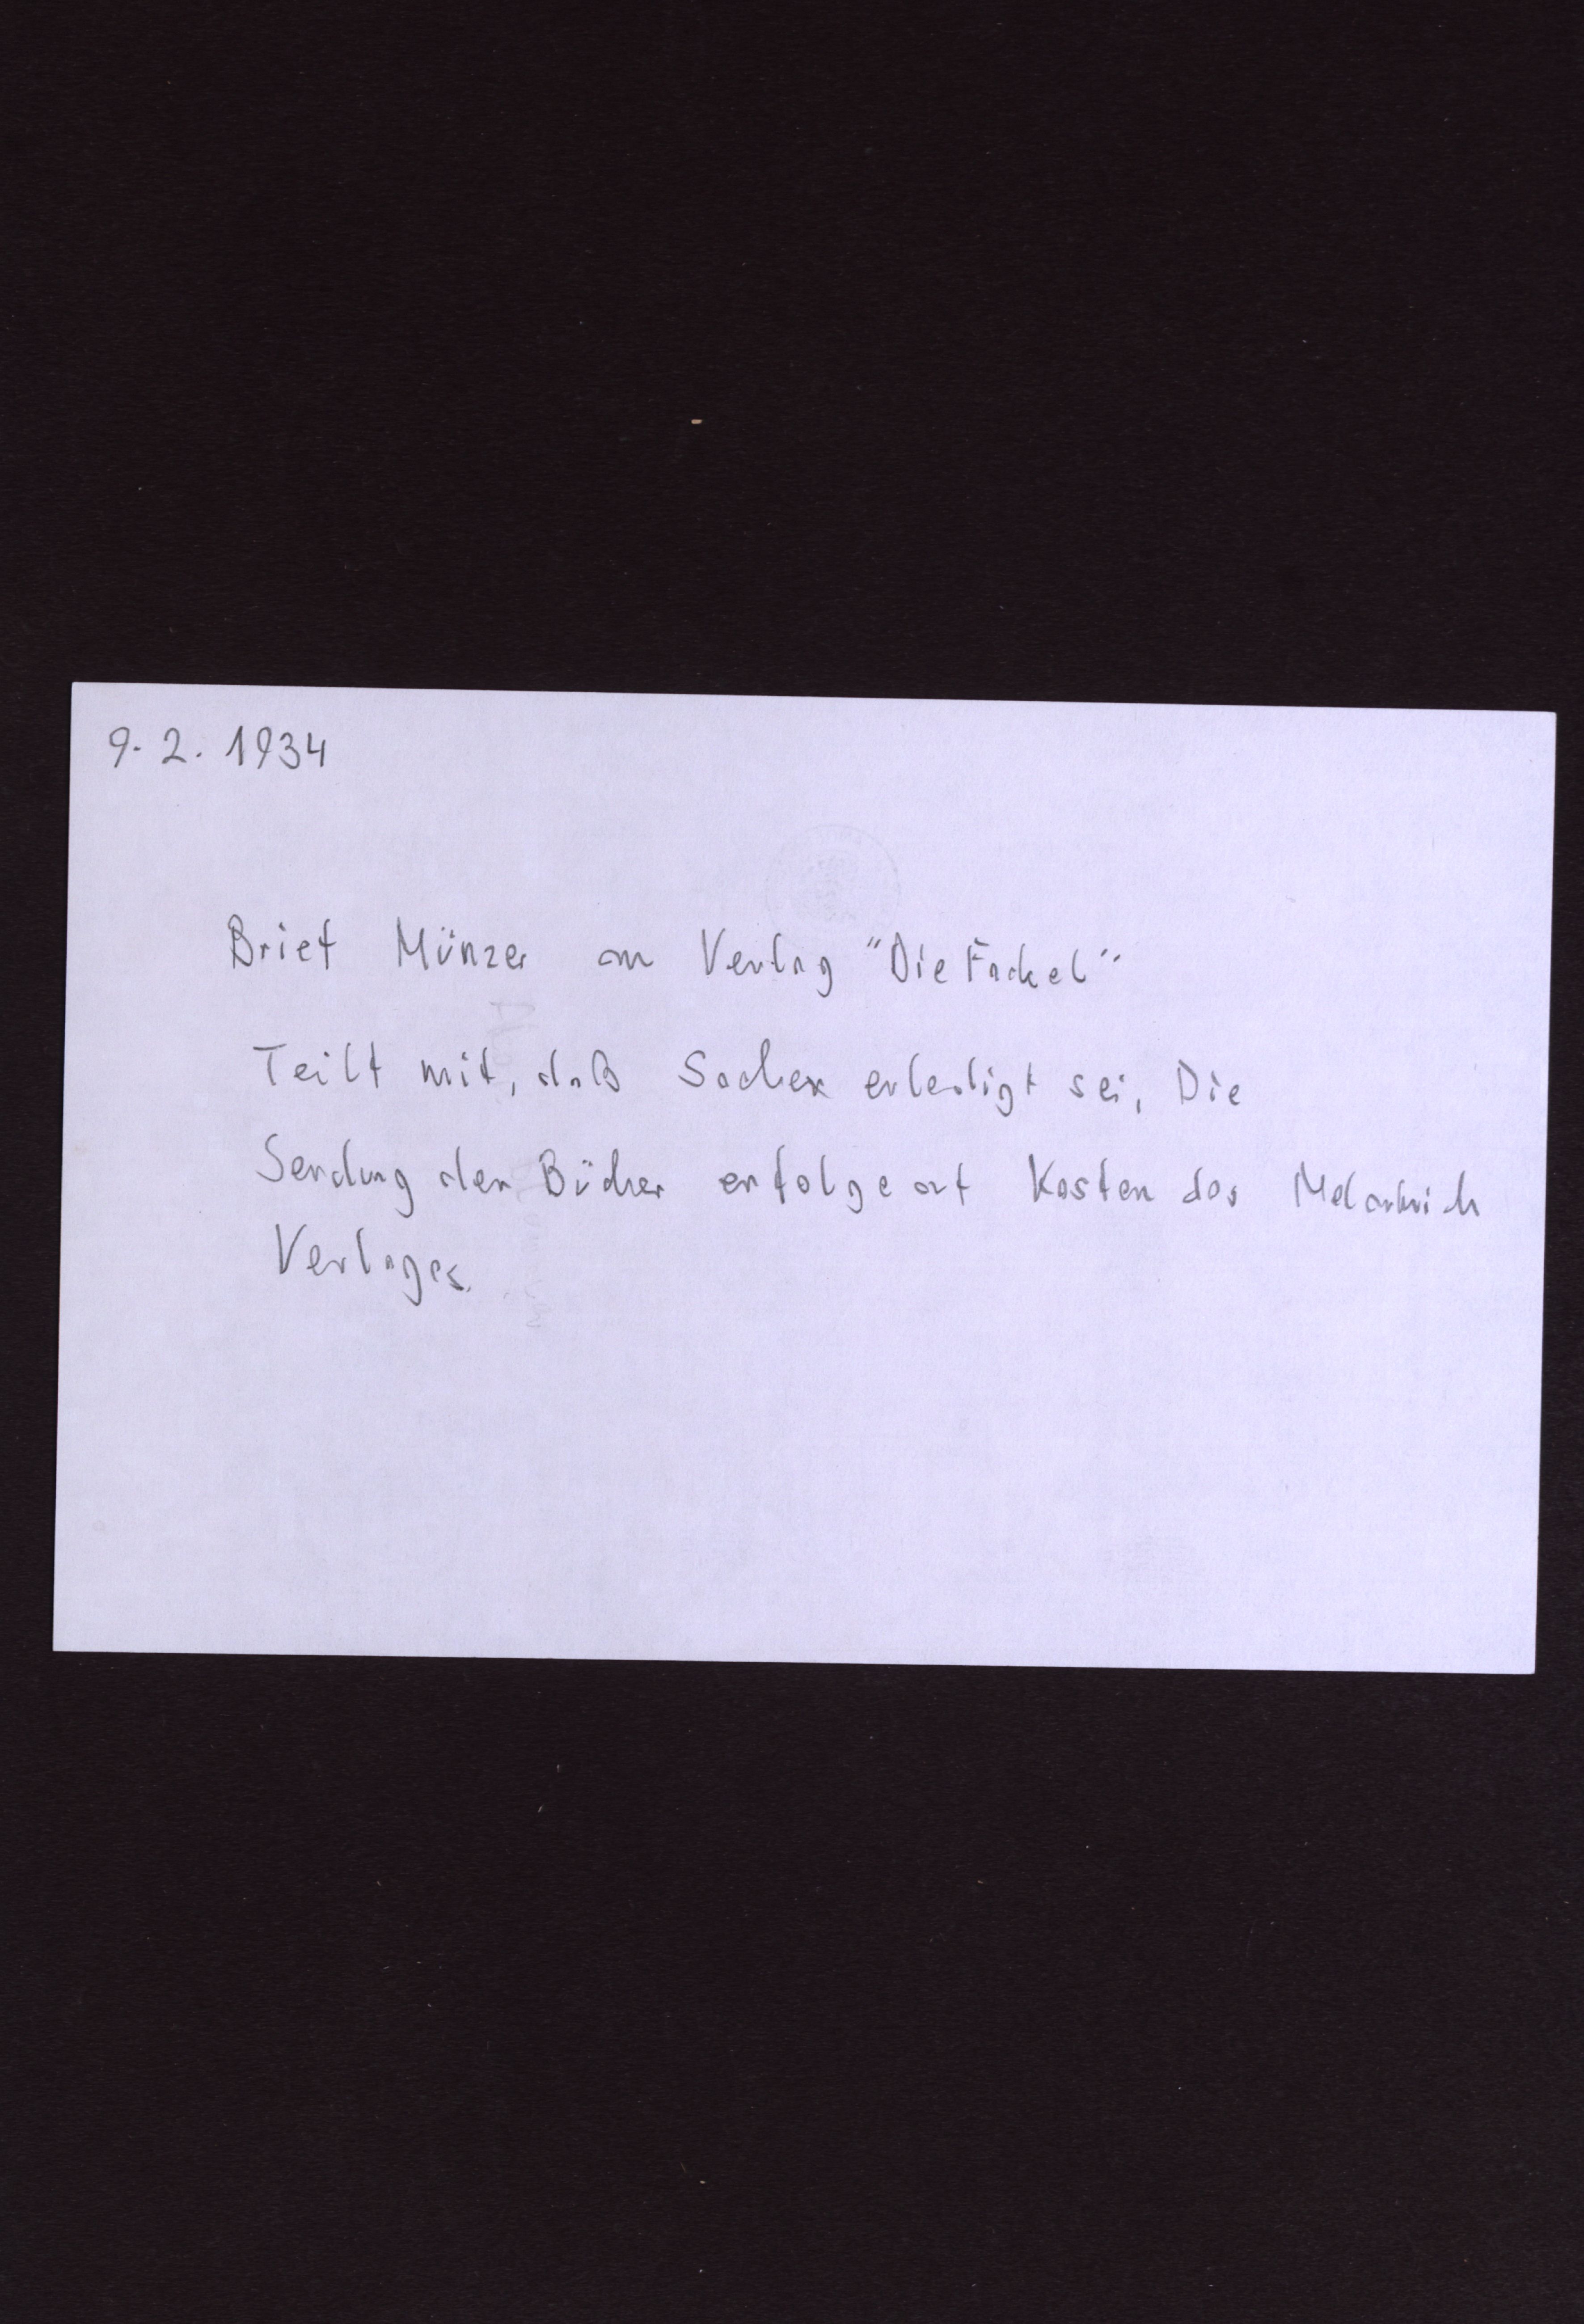 9. 2. 1934
Brief Münzer an Verlag "Die Fackel"
Teilt mit, daß Sachen erledigt sei, Die
Sendung der Bücher erfolge auf Kosten des Melantrich
Verlages.